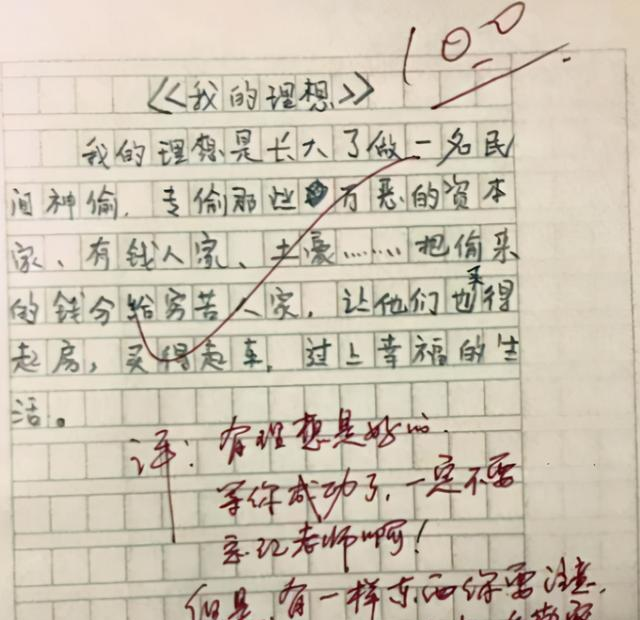 100
《我的理想》
我的理想是长大了做一名民
间神偷，专偷那些万恶的资本
家、有钱人家、土豪……把偷来
的钱分给穷苦人家，让他们也买得
起房，买得起车，过上幸福的生
活。
评：有理想是好的．
等你成功了，一定不要
忘记老师啊！
但是，有一样东西你要注意，